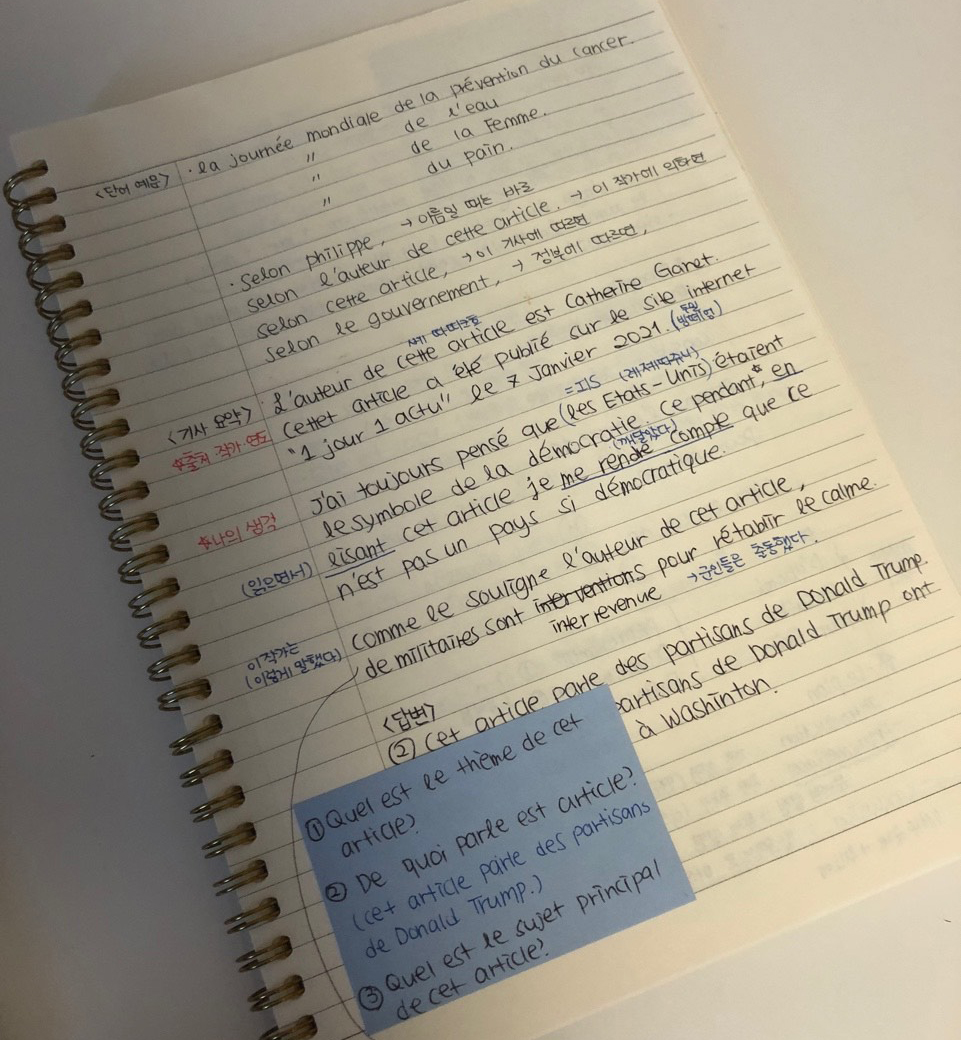 <단어 예문> · la journée mondiale de la prévention du cancer.
〃 de l'eau
〃 de la Femme.
〃 du pain.
· selon philippe, → 이름일 때는 바로
selon l'auteur de cette article. → 이 작가에 의하면
selon cette article, → 이 기사에 따르면
selon le gouvernement, → 정부에 따르면,
<기사 요약> L'auteur de cette article est Catherine Ganet.
cettet article a été publié sur le site internet
*출처 작가·연도 "1 jour 1 actu" le 7 Janvier 2021.
= ils
*나의 생각 J'ai toujours pensé que (les Etats-Unis) étaient
le symbole de la démocratie. ce pendant*, en
(깨달았다)
(읽으면서) lisant cet article je me rende compte que ce
n'est pas un pays si démocratique.
이 작가는
(이렇게 말했다) comme le souligne l'auteur de cet article,
de militaires sont interventions pour rétablir le calme.
interrevenue → 군인들은 출동했다.
<답변>
② cet article parle des partisans de Donald Trump.
partisans de Donald Trump ont
à Washinton.
① Quel est le thème de cet
article?
② De quoi parle est article?
(cet article parle des partisans
de Donald Trump.)
③ Quel est le sujet principal
de cet article?